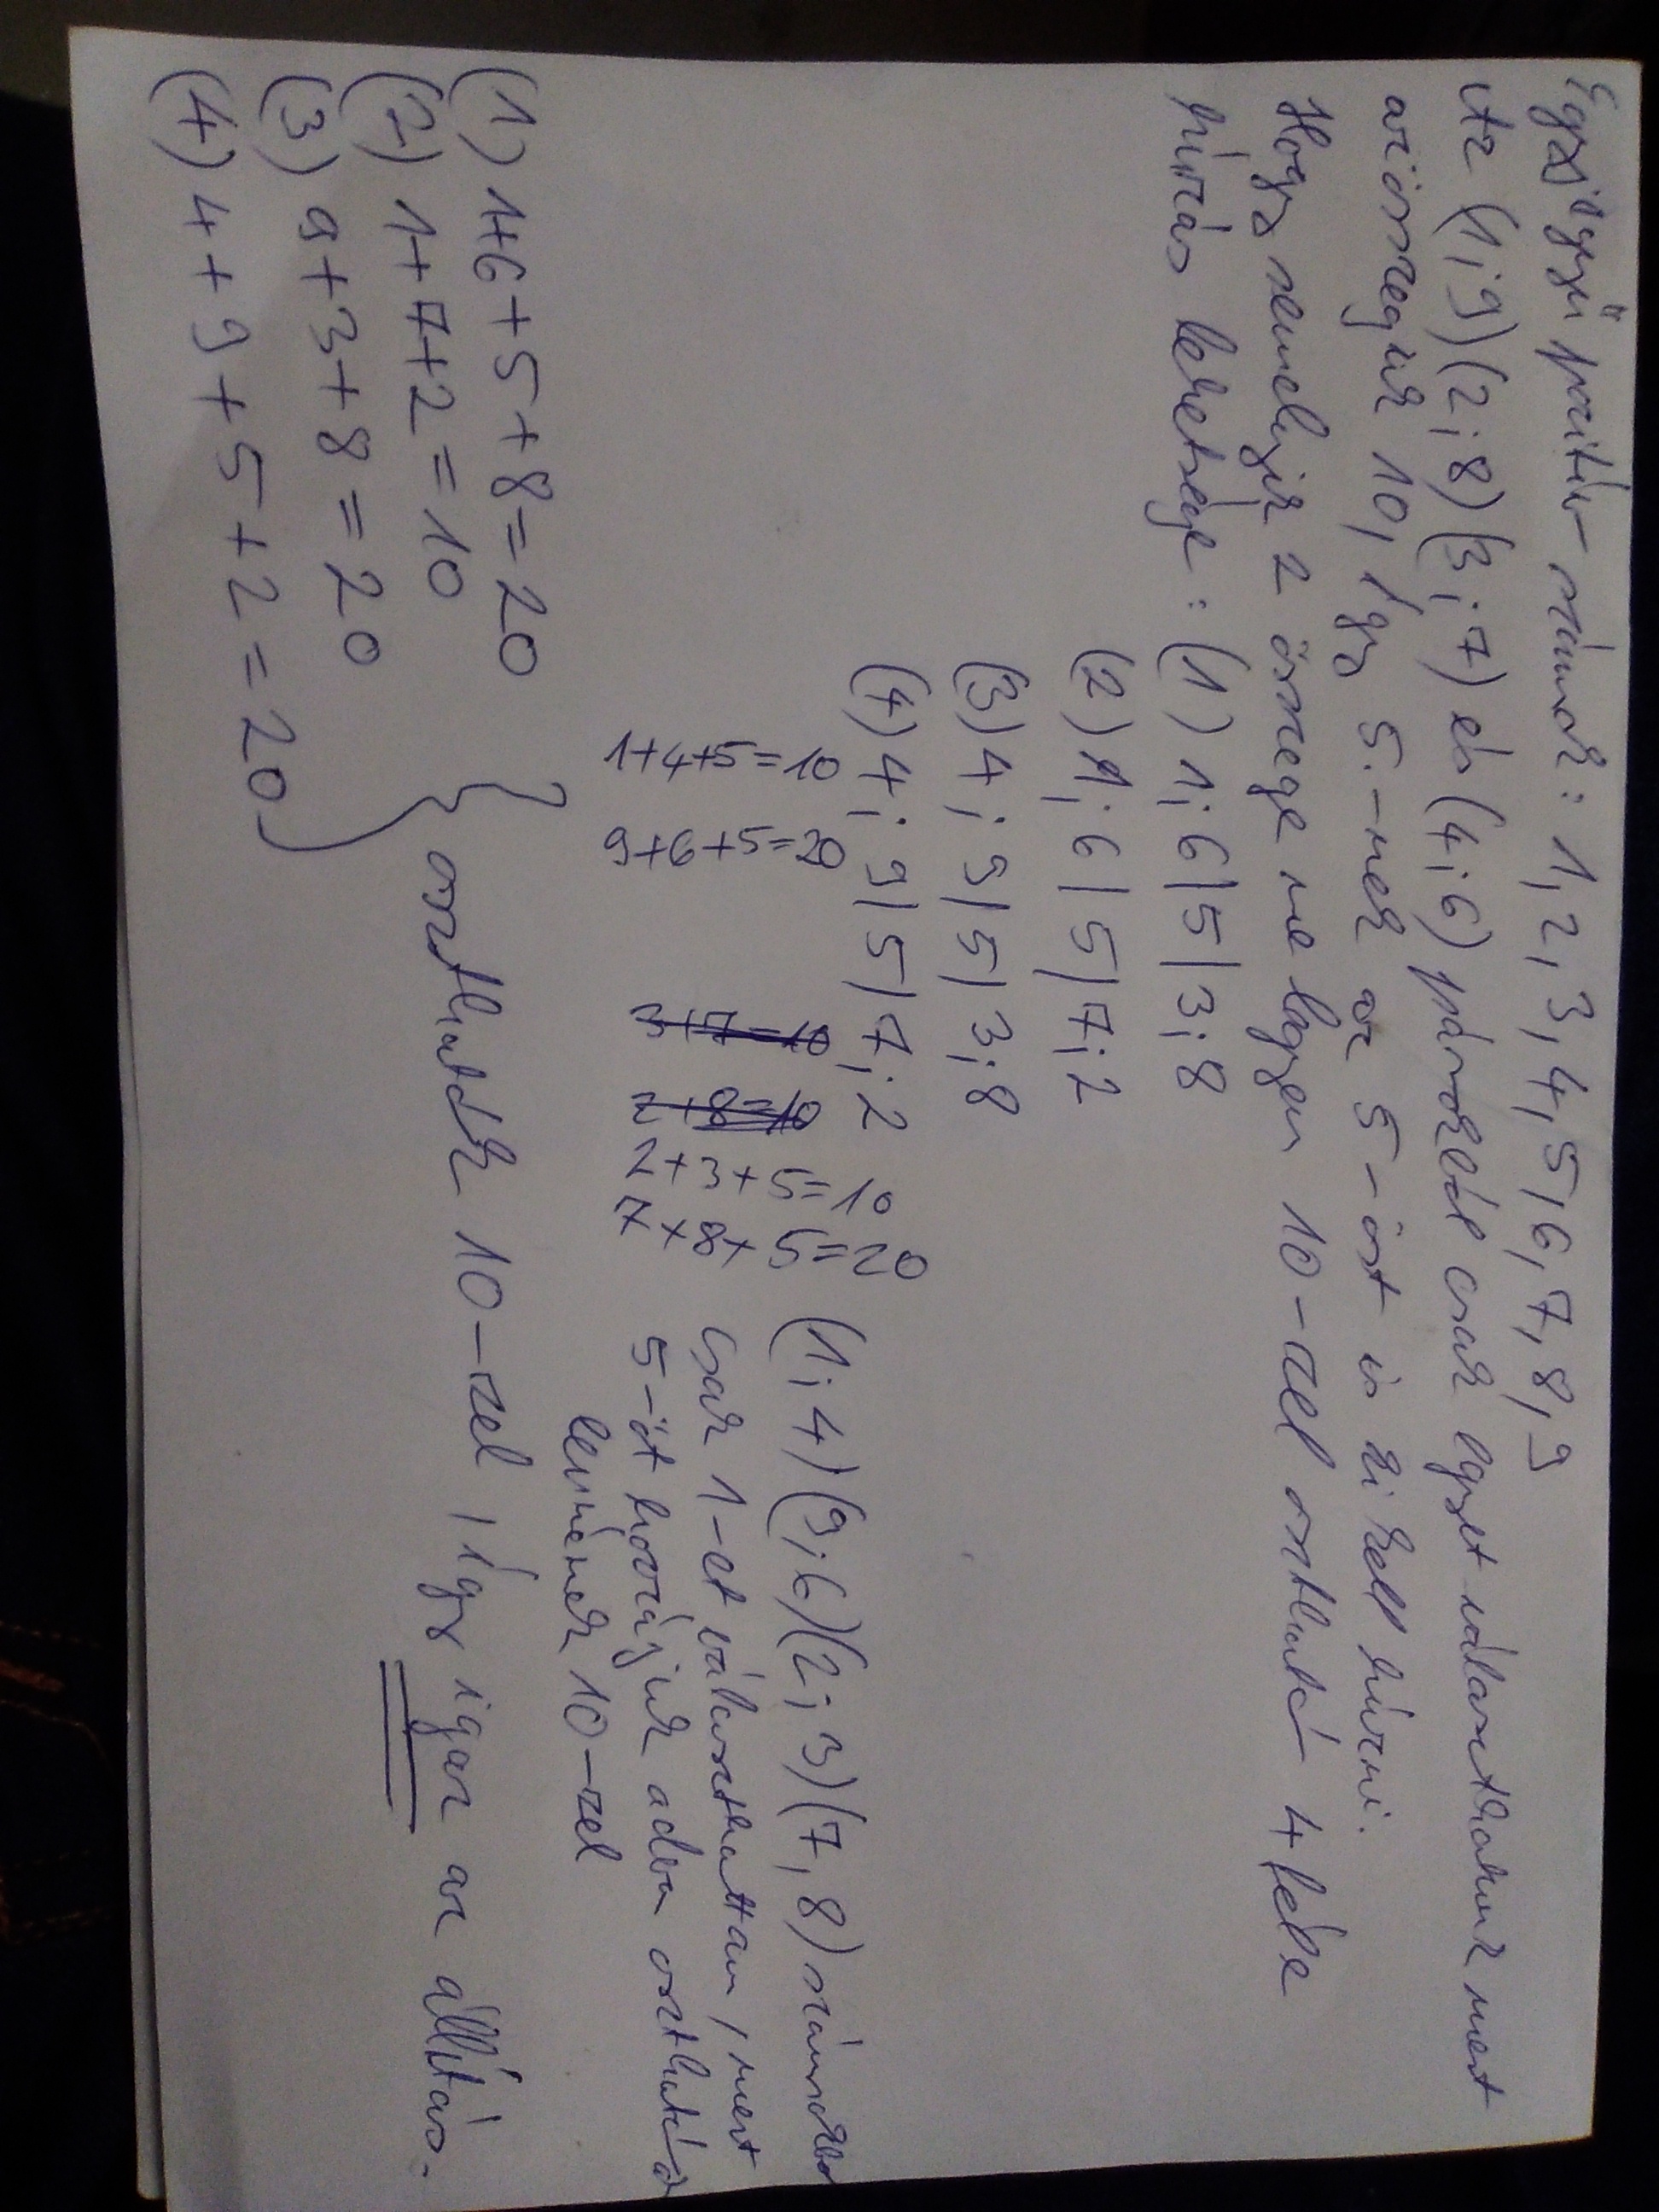 Egyjegyű pozitív számok: 1, 2, 3, 4, 5, 6, 7, 8, 9
Az (1;9) (2;8) (3;7) és (4;6) párokból csak egyet választhatunk mert
az összegük 10, így 5.-nek az 5-öst is ki kell húzni.
Hogy semelyik 2 összege ne legyen 10-zel osztható 4 féle
húzás lehetséges: (1) 1; 6 | 5 | 3; 8
(2) 1; 6 | 5 | 7; 2
(3) 4; 9 | 5 | 3; 8
(4) 4; 9 | 5 | 7; 2
1+4+5=10
9+6+5=20
3+7=10
2+8=10
2+3+5=10
7+8+5=20
(1; 4) (9; 6) (2; 3) (7, 8) számokból
csak 1-et választhattam, mert
5-öt hozzájuk adva oszthatóa
lennének 10-zel
(1) 1+6+5+8=20
(2) 1+7+2=10
(3) 9+3+8=20
(4) 4+9+5+2=20
oszthatók 10-zel, így igaz az állítás.